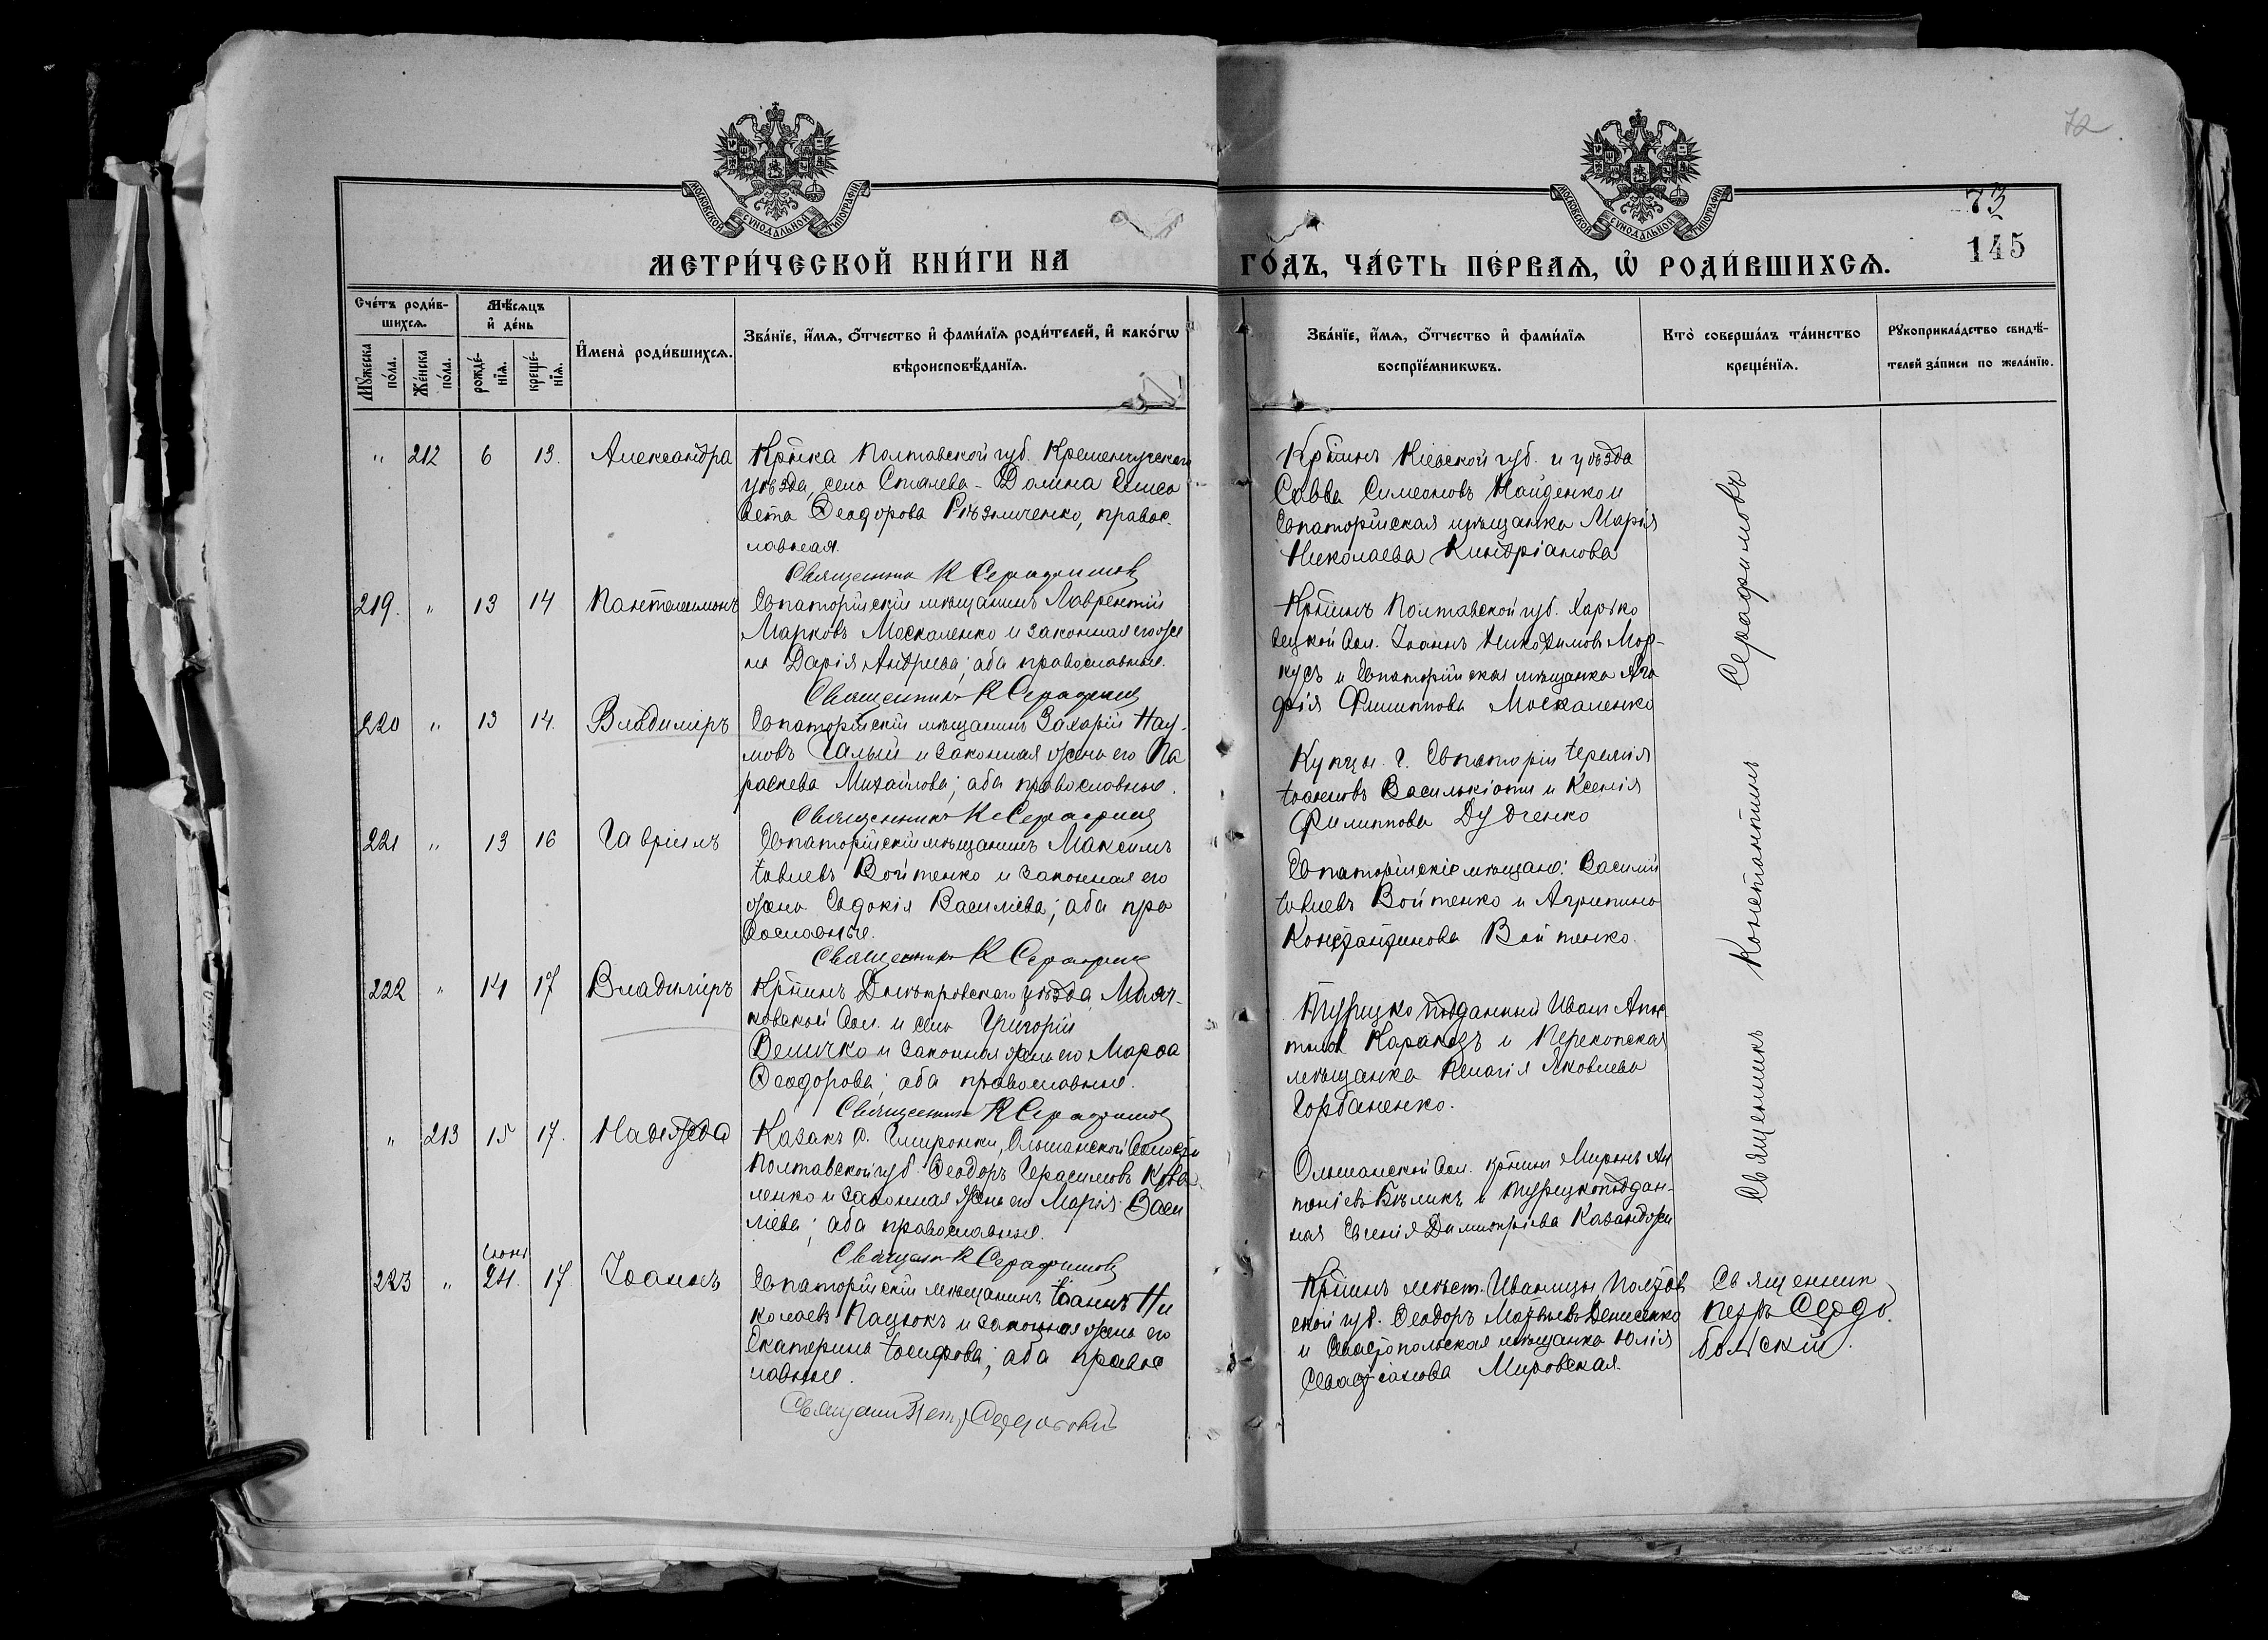 72
73
145
МОСКОВСКОЙ СѴНОДАЛЬНОЙ ТИПОГРАФІИ
МОСКОВСКОЙ СѴНОДАЛЬНОЙ ТИПОГРАФІИ
МЕТРИ́ЧЕСКОЙ КНИ́ГИ НА
ГО́ДЪ, ЧА́СТЬ ПЕ́РВАѦ, Ѡ҆ РОДИ́ВШИХСѦ.
Сче́тъ роди́в-
шихсѧ.
Мѣ́сѧцъ
и҆ де́нь
Мꙋ́жеска
по́ла.
Же́нска
по́ла.
рожде́-
нїѧ.
креще́-
нїѧ.
И҆мена̀ роди́вшихсѧ.
Зва́нїе, и҆́мѧ, ѻ҆́тчество и҆ фами́лїѧ роди́телей, и҆ како́гѡ
вѣроисповѣ́данїѧ.
Зва́нїе, и҆́мѧ, ѻ҆́тчество и҆ фами́лїѧ
воспрїе́мникѡвъ.
Кто̀ соверша́лъ та́инство
креще́нїѧ.
Рꙋкоприкла́дство свидѣ́-
телей за́писи по жела́нїю.
" 212 6 13. Александра
Кр҃нка Полтавской губ. Кременчугскаго
уѣзда, село Сталева-Долина Елиса
вета Ѳеодорова православ.
лавная.
Священникъ К Серафимовъ
Кр҃нинъ Кіевской губ. и уѣзда
Савва Симеоновъ Найденко и
Евпаторійская мѣщанка Марія
Николаева Кипріанова
219. " 13 14 Пантелеимонъ
Евпаторійскій мѣщанинъ Лаврентій
Марковъ Москаленко и законная его же
на Дарія Андреева; оба православные.
Священникъ К Серафимовъ
Кр҃нинъ Полтавской губ. Харько
вецкой вол. Іоаннъ Никодимовъ Мор-
кусъ и Евпаторійская мѣщанка Ага
фія Филиппова Москаленко
220 " 13 14. Владиміръ
Евпаторійскій мѣщанинъ Захарій Нау-
мовъ Галый и законная жена его Па
раскева Михайлова; оба православные.
Священникъ К Серафимовъ
Купцы г. Евпаторіи Іеремія
Іоанновъ Василькіоти и Ксенія
Филиппова Дудченко
221 " 13 16 Гавріилъ
Евпаторійскій мѣщанинъ Максимъ
Іовлевъ Войтенко и законная его
жена Евдокія Василіева; оба пра
вославные.
Священникъ К Серафимовъ
Евпаторійскіе мѣщане: Василій
Іовлевъ Войтенко и Агрипина
Константинова Войтенко.
222 " 14 17 Владиміръ
Кр҃нинъ Днѣпровскаго уѣзда, Маяч-
ковской вол. и села Григорій
Величко и законная жена его Марѳа
Ѳеодорова; оба православные.
Священникъ К Серафимовъ
Турецко подданный Иванъ Апос-
толовъ Карагозъ и Перекопская
мѣщанка Пелагія Яковлева
Горбаненко.
" 213 15 17. Надежда
Казакъ с. Ольшанской волости
Полтавской губ. Ѳеодоръ Герасимовъ Кова
ленко и законная жена его Марія Васи
ліева; оба православные.
Священ. К Серафимовъ
Ольшанской вол. кр҃нинъ Миронъ Ан
тоніевъ Бѣликъ и Турецкоподдан-
ная Евгенія Димитріева
Священникъ Константинъ Серафимовъ
223 " Іюня 24. 17. Іоаннъ
Евпаторійскій мѣщанинъ Іоаннъ Ни
колаевъ Пацюкъ и законная жена его
Екатерина Іосифова; оба правос
лавные.
Священникъ Петръ Сердобольскій
Кр҃нинъ мѣст. Иваницы, Полтав
ской губ. Ѳеодоръ Матвѣевъ Денисенко
и Севастопольская мѣщанка Юлія
Севастіанова Мировская.
Священник
Петръ Сердо
больскій.